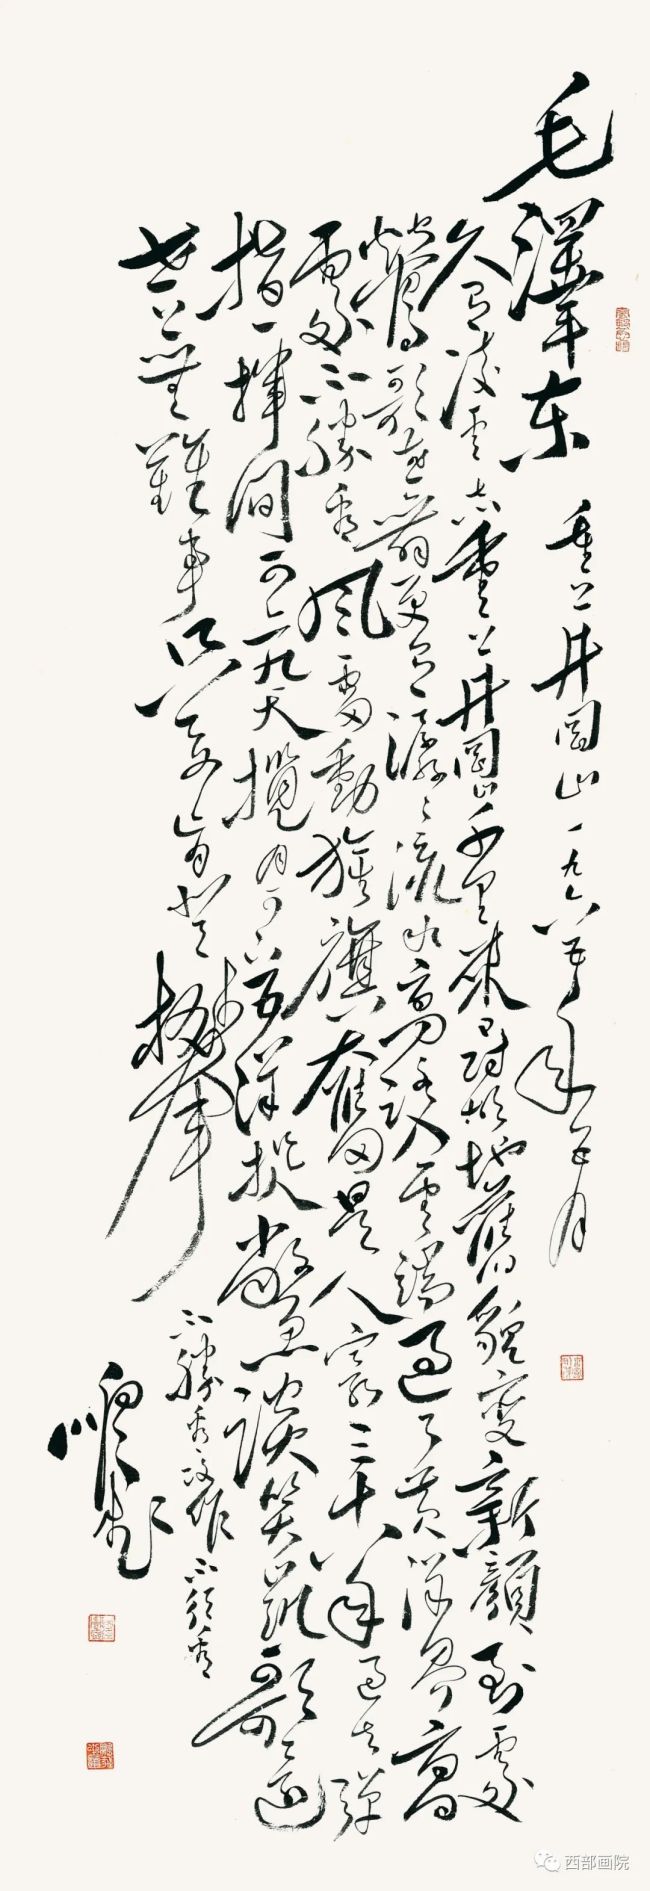 毛澤东 重上井岡山 一九六五年五月
久有凌雲志重上井岡山千里來尋故地舊貌變新顏到處
鶯歌燕舞更有潺々流水高路入雲端過了黃洋界高
處不勝看風雷動旌旗奮是人寰三十八年過去彈
指一揮間可上九天攬月可下五洋捉鱉談笑凱歌還
世上無難事只要肯登攀
不勝看 作不須看
西部画院